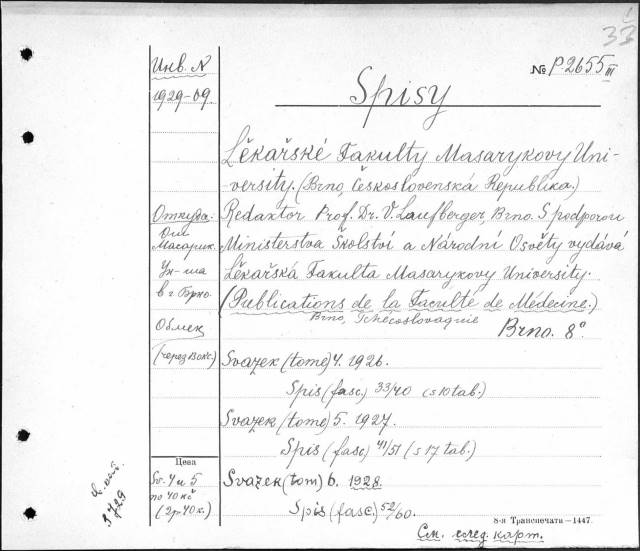 33
Инв. N
1929-09.
№ P-2655 III
Spisy
Lěkařské Fakulty Masarykovy Uni-
versity. (Brno, Československá Republika.)
Откуда: Redaktor Prof. Dr. V. Laufberger, Brno. S podporou
От
Масарик. Ministerstva Školství a Národní Osvěty vydává
Ун-та Lěkařská Fakulta Masarykovy University.
в г. Брно (Publications de la Faculté de Médecine.)
Brno, Tchécoslovaquie
Brno. 8°
Обмен
(через Вокс) Svazek (tome) 4. 1926.
Spis (fasc.) 33/40 (s 10 tab.)
Svazek (tome) 5. 1927.
Spis (fasc) 41/51 (s 17 tab.)
Цена
Sv. 4 и 5 Svazek (tom) 6. 1928.
по 40 кč
(2р 40к.) Spis (fasc.) 52/60.
8-я Транспечати—1447.
См. след. карт.